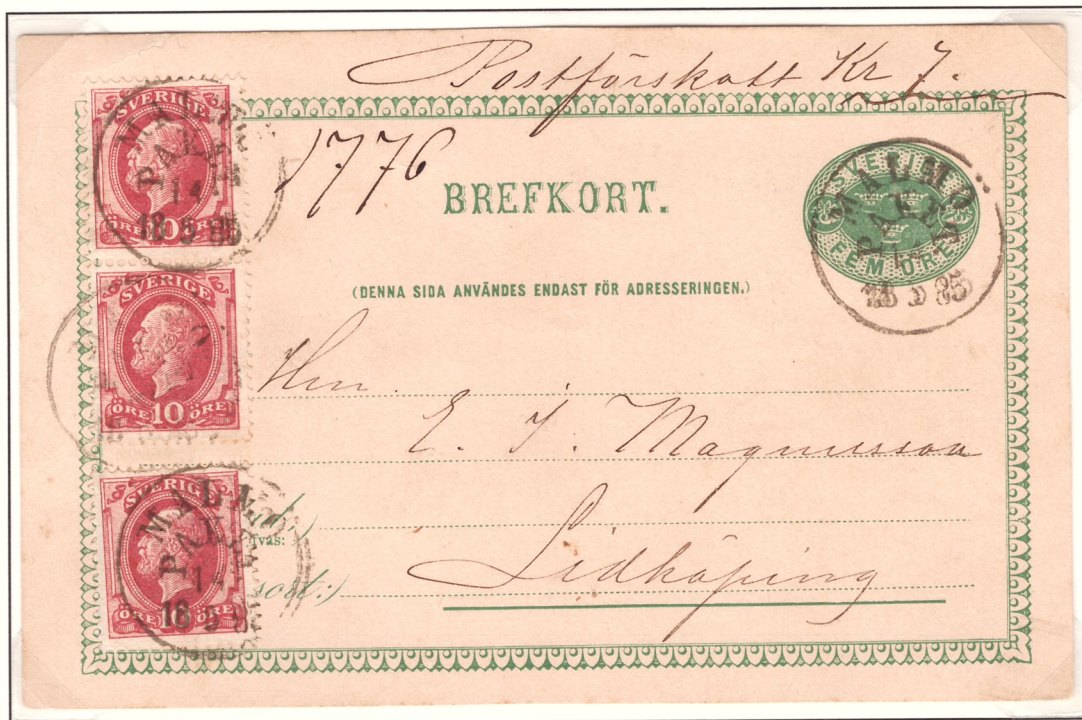 Postförskott Kr 7.
1776
BREFKORT.
(DENNA SIDA ANVÄNDES ENDAST FÖR ADRESSERINGEN.)
SVERIGE
FEM ÖRE
MALMÖ
PAKET
SVERIGE
ÖRE 10 ÖRE
MALMÖ
PAKET
14
18 5 85
SVERIGE
ÖRE 10 ÖRE
SVERIGE
10 ÖRE
MALMÖ
PAKET
18 5 85
Herr
E. J. Magnusson
Lidköping